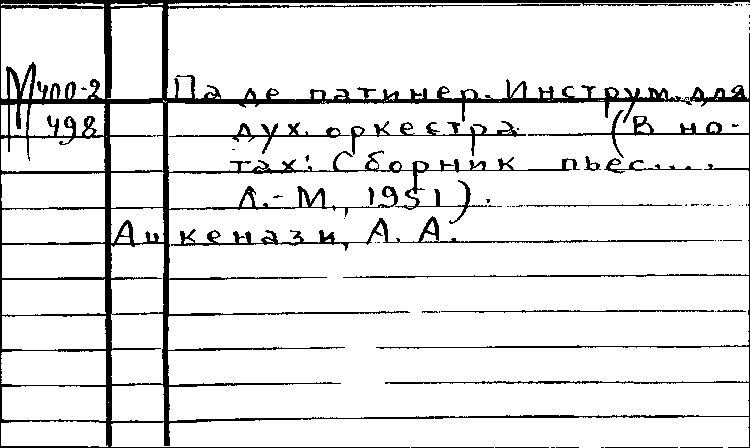 М400-2 Па де патинер. Инструм. для
498 дух. оркестра (В но-
тах: Сборник пьес....
Л.-М., 1951).
Ашкенази, А. А.